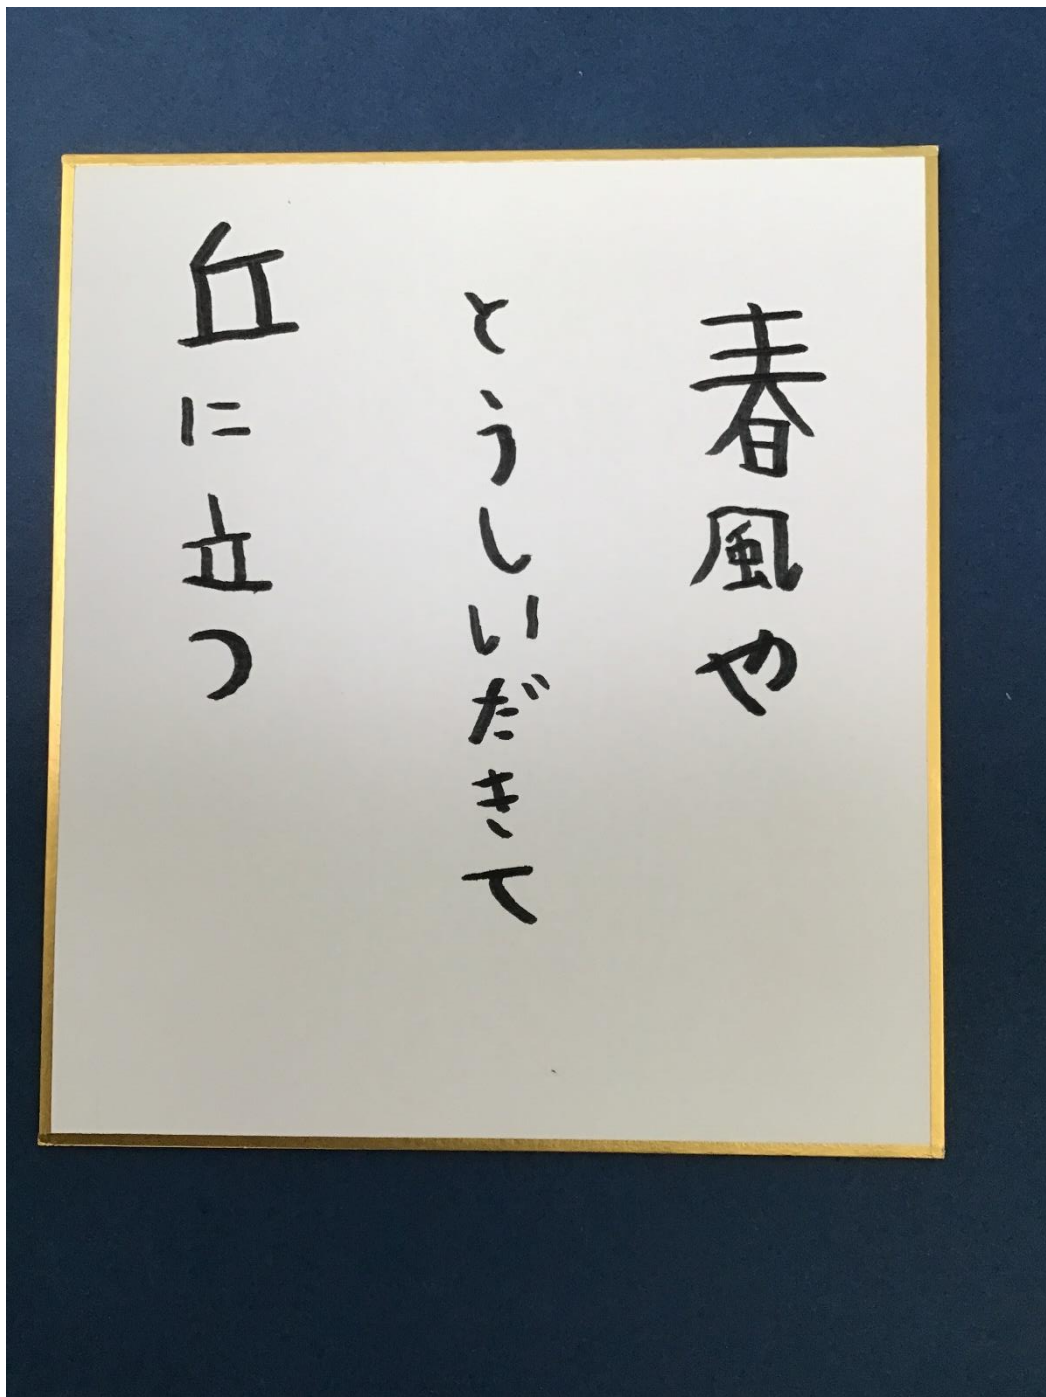 春風や
とうしいだきて
丘に立つ